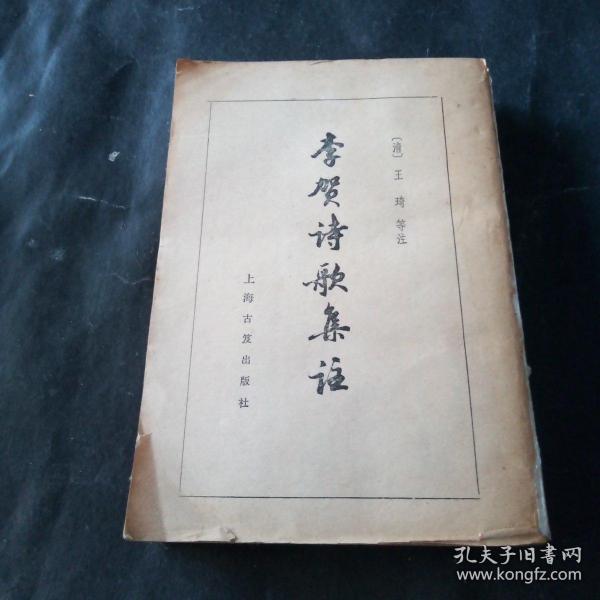 〔清〕王琦等注
李贺诗歌集註
上海古笈出版社
孔夫子旧书网
www.kongfz.com